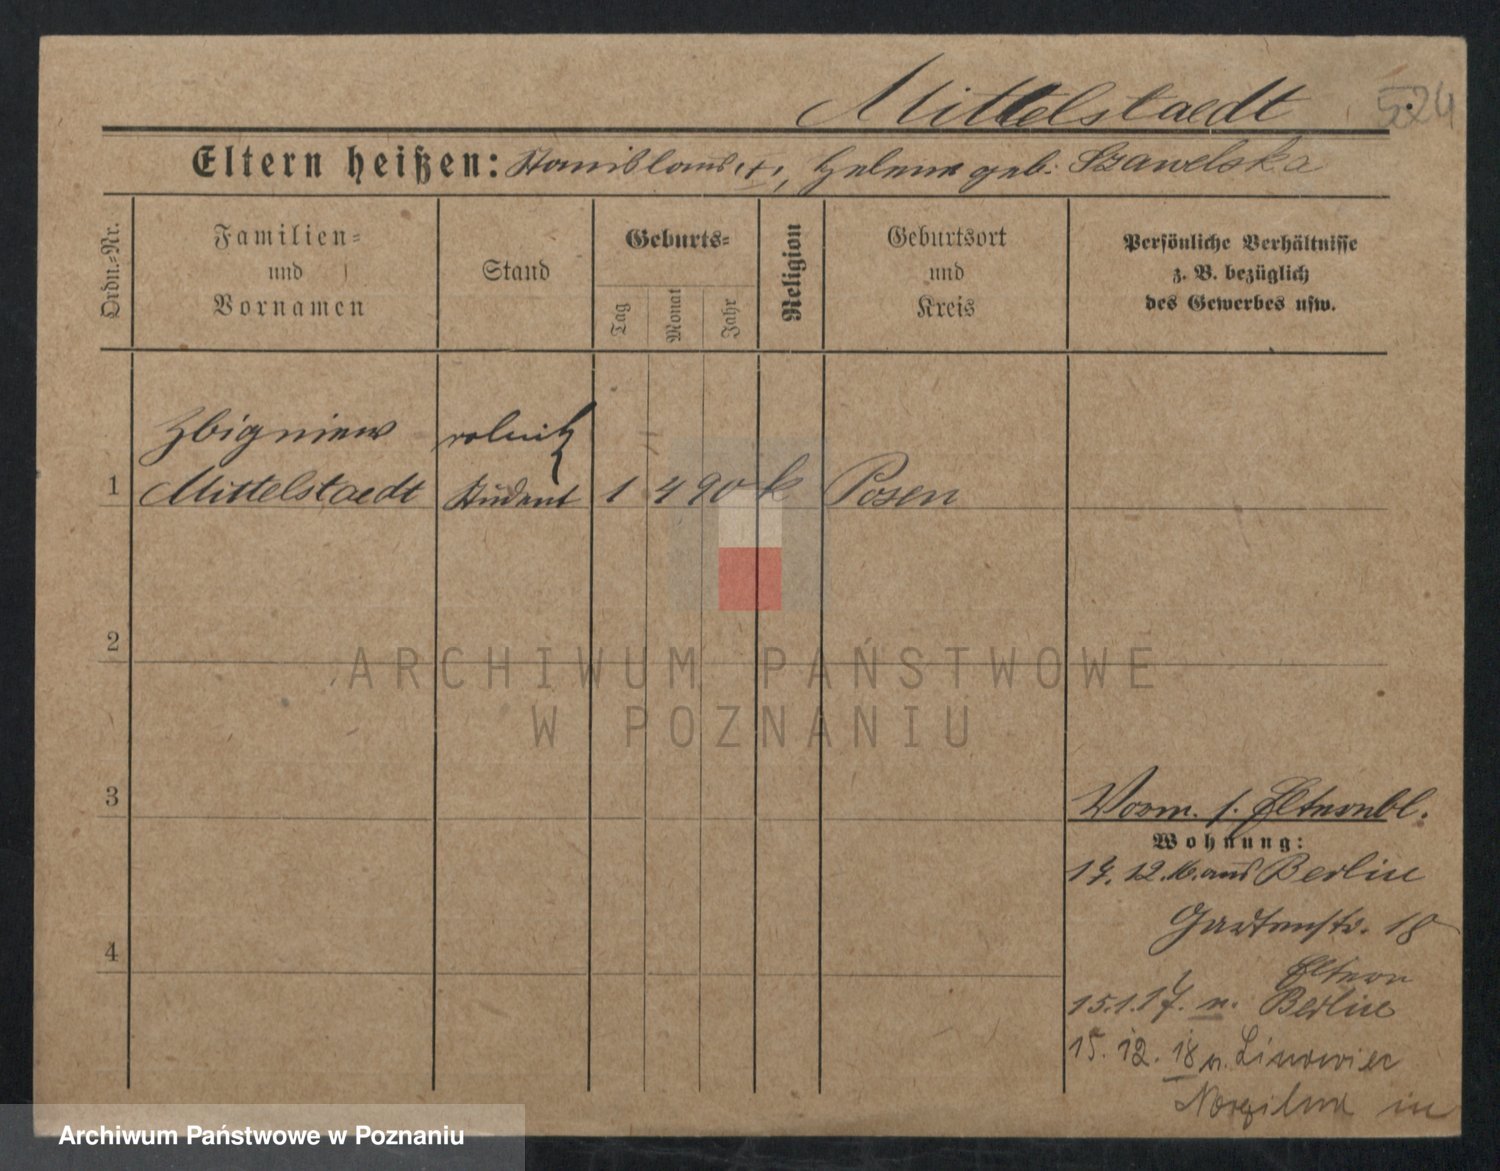 Mittelstaedt
524
Eltern heißen: Stanislaus (+), Helene geb. Szawelska
Ordn.-Nr.
Familien-
und
Vornamen
Stand
Geburts-
Tag
Monat
Jahr
Religion
Geburtsort
und
Kreis
Persönliche Verhältnisse
z. B. bezüglich
des Gewerbes usw.
Zbigniew rolnik
1 Mittelstaedt Student 1 4 90 k Posen
2
ARCHIWUM PAŃSTWOWE
W POZNANIU
3
Vorm. s. Elternbl.
Wohnung:
17. 12. 16. aus Berlin
Gartenstr. 18
4
Eltern
15.1.17. n. Berlin
15. 12. 18 n.
in
Archiwum Państwowe w Poznaniu